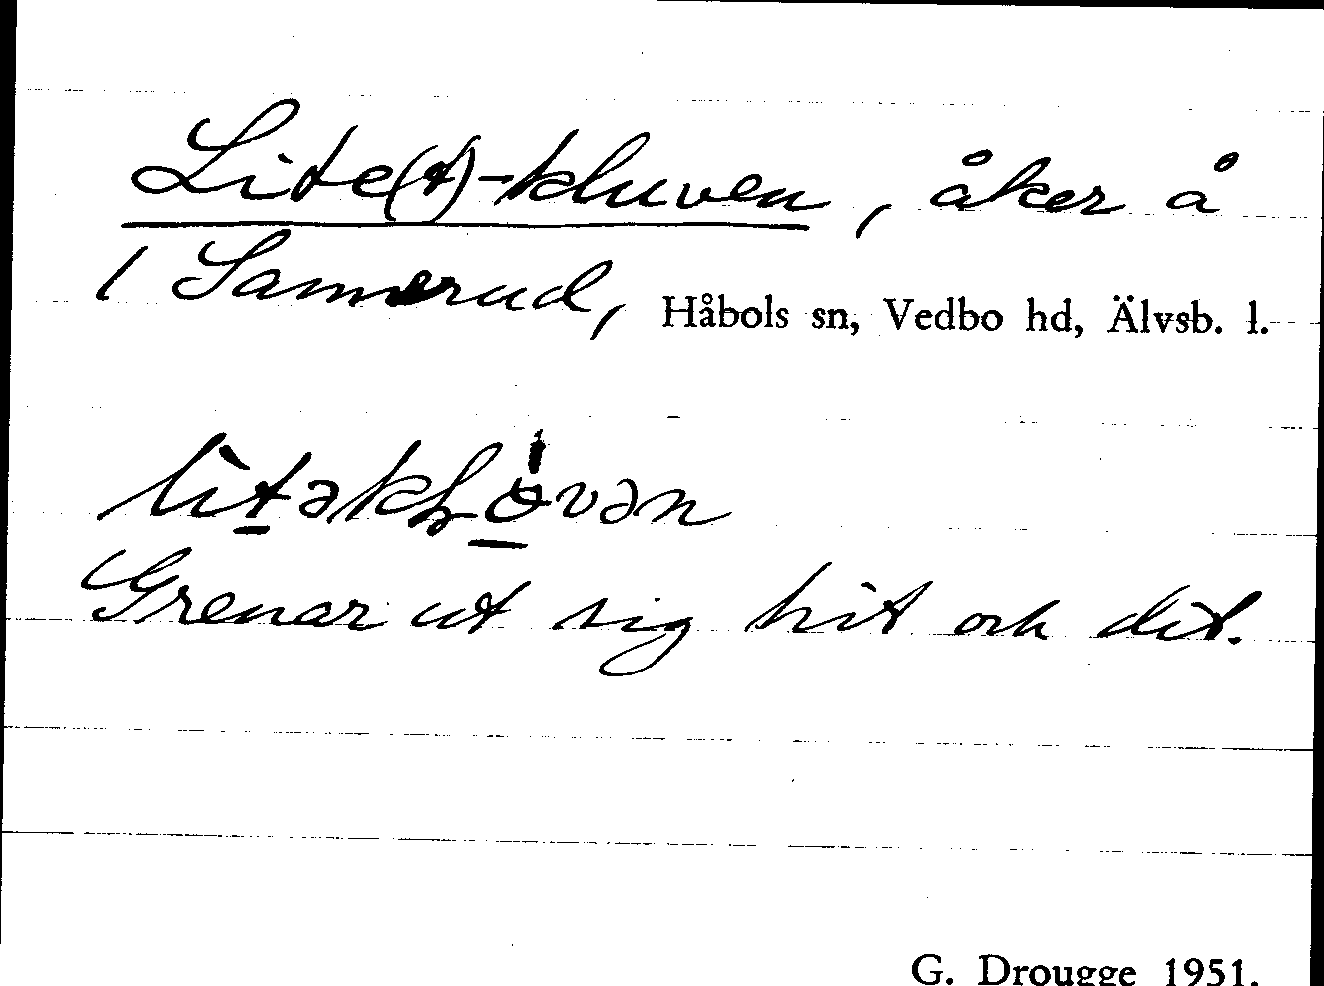 Lite(t)-kluven, åker å
1 Sannerud, Håbols sn, Vedbo hd, Älvsb. l.
Grenar ut sig hit och dit.
G. Drougge 1951.